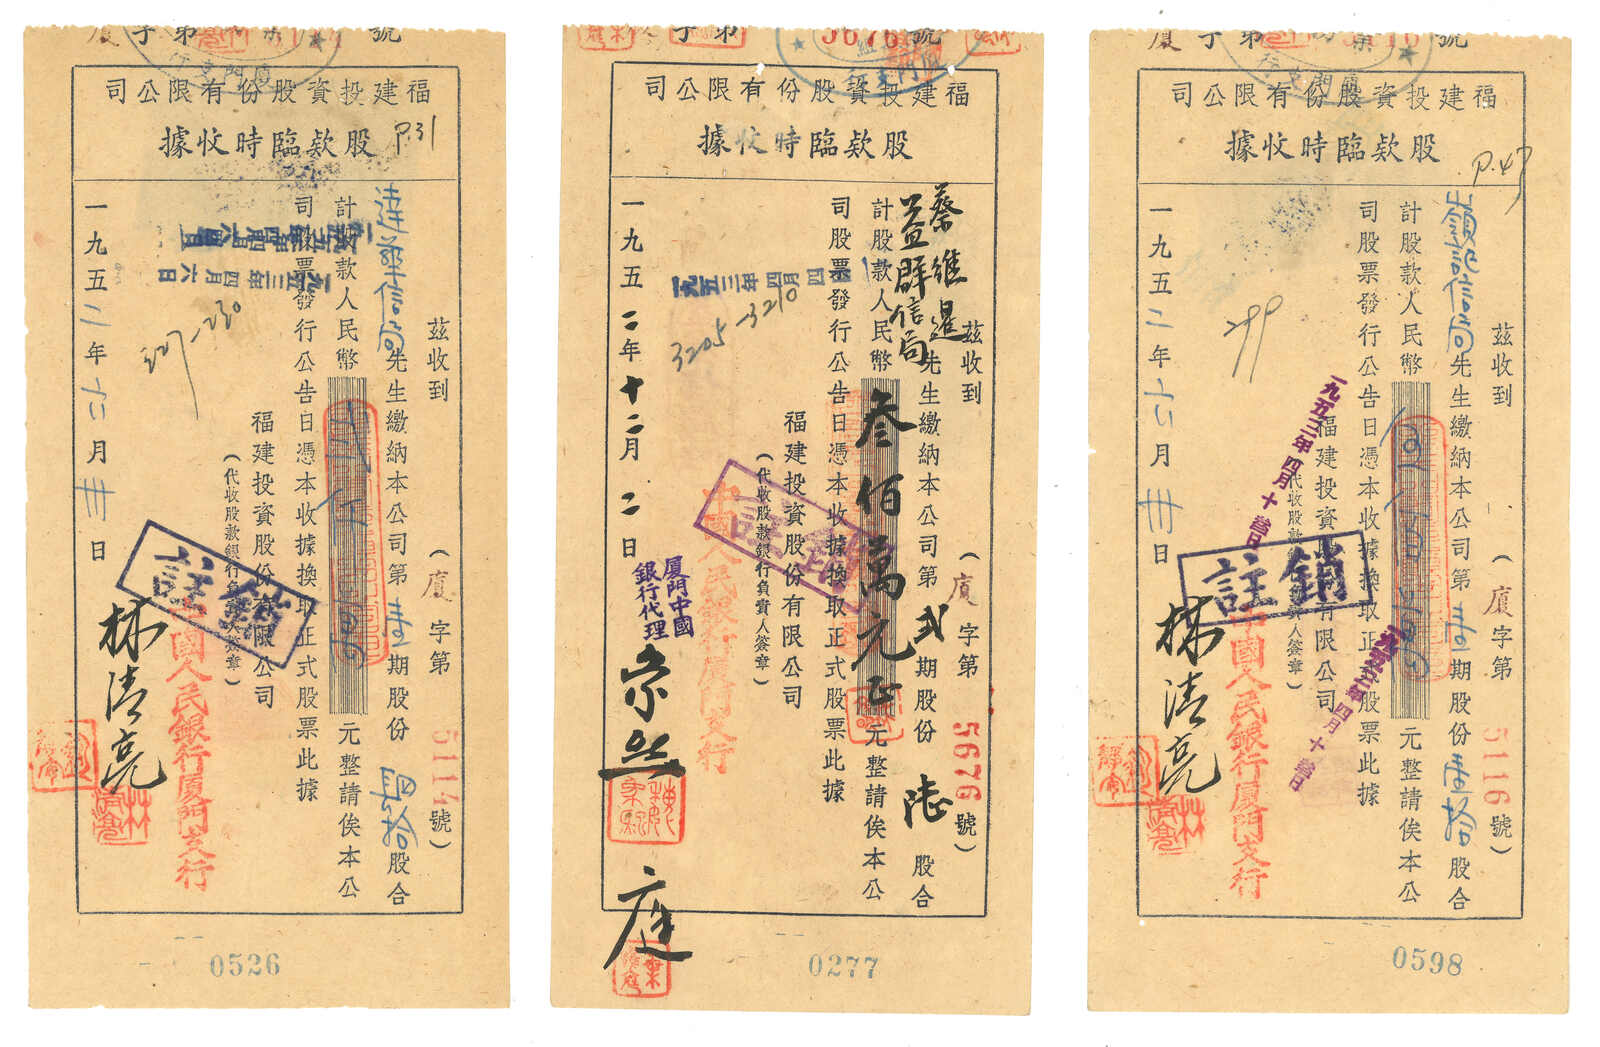 號
字第
廈
廈門支行
福建投資股份有限公司
股欵臨時收據
P.31
茲收到
(廈字第5114號)
達華信局先生繳納本公司第壹期股份肆拾股合
計股款人民幣
元整請俟本公
司股票發行公告日憑本收據換取正式股票此據
福建投資股份有限公司
(代收股款銀行負責人簽章)
中國人民銀行廈門支行
一九五二年六月卅日
一九五三年四月六日
227-230
註銷
林清亮
0526
號
5676
字第
廈門支行
福建投資股份有限公司
股欵臨時收據
茲收到
(廈字第5676號)
蔡維暹
益群信局
先生繳納本公司第貳期股份陸股合
計股款人民幣叁佰萬元正元整請俟本公
司股票發行公告日憑本收據換取正式股票此據
福建投資股份有限公司
(代收股款銀行負責人簽章)
中國人民銀行廈門支行
一九五二年十二月二日
一九五三年四月四
3205-3210
註銷
廈門中國
銀行代理
0277
號
字第
廈
福建投資股份有限公司
股欵臨時收據
P.47
茲收到
(廈字第5116號)
信局先生繳納本公司第壹期股份壹拾股合
計股款人民幣
元整請俟本公
司股票發行公告日憑本收據換取正式股票此據
福建投資股份有限公司
(代收股款銀行負責人簽章)
中國人民銀行廈門支行
一九五二年六月卅日
299
註銷
林清亮
0598